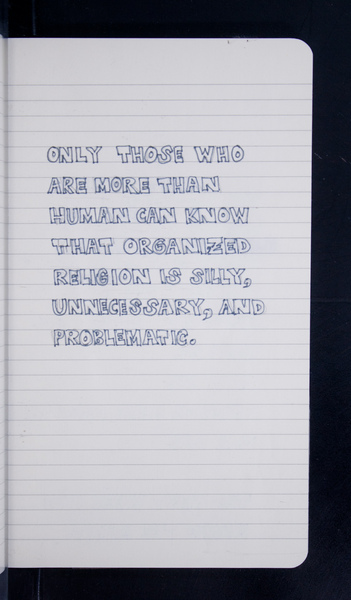 ONLY THOSE WHO
ARE MORE THAN
HUMAN CAN KNOW
THAT ORGANIZED
RELIGION IS SILLY,
UNNECESSARY, AND
PROBLEMATIC.